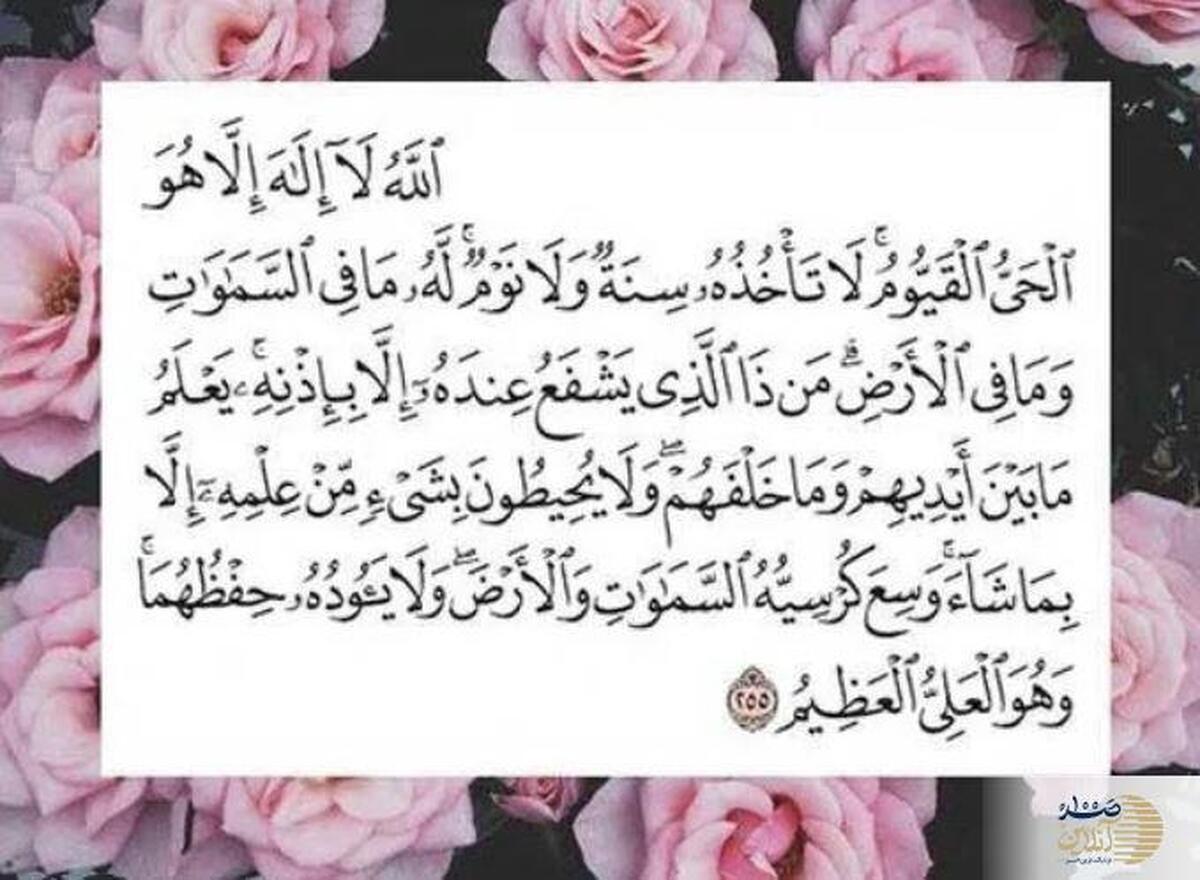 ٱللَّهُ لَآ إِلَٰهَ إِلَّا هُوَ
ٱلْحَىُّ ٱلْقَيُّومُ ۚ لَا تَأْخُذُهُۥ سِنَةٌ وَلَا نَوْمٌ ۚ لَّهُۥ مَا فِى ٱلسَّمَٰوَٰتِ
وَمَا فِى ٱلْأَرْضِ ۗ مَن ذَا ٱلَّذِى يَشْفَعُ عِندَهُۥٓ إِلَّا بِإِذْنِهِۦ ۚ يَعْلَمُ
مَا بَيْنَ أَيْدِيهِمْ وَمَا خَلْفَهُمْ ۖ وَلَا يُحِيطُونَ بِشَىْءٍ مِّنْ عِلْمِهِۦٓ إِلَّا
بِمَا شَآءَ ۚ وَسِعَ كُرْسِيُّهُ ٱلسَّمَٰوَٰتِ وَٱلْأَرْضَ ۖ وَلَا يَـُٔودُهُۥ حِفْظُهُمَا ۚ
وَهُوَ ٱلْعَلِىُّ ٱلْعَظِيمُ ٢٥٥
صدا
آنلاین